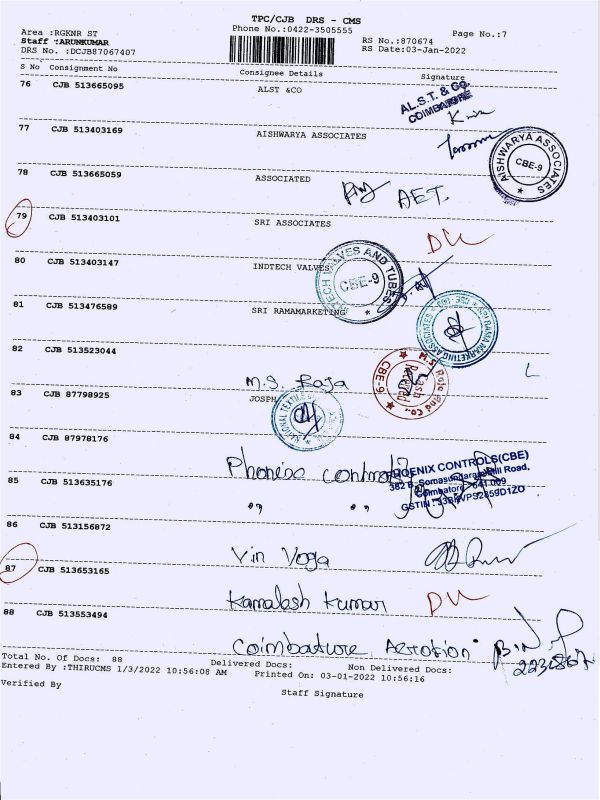 TPC/CJB DRS - CMS
Area :RGKNR ST
Phone No.:0422-3505555
RS No.:870674
Page No.:7
Staff :ARUNKUMAR
RS Date:03-Jan-2022
DRS No. :DCJB87067407
S No Consignment No Consignee Details Signature
76 CJB 513665095 ALST &CO
AL.S.T. & CO.
COIMBATORE
77 CJB 513403169 AISHWARYA ASSOCIATES
AISHWARYA ASSOCIATES
CBE-9
78 CJB 513665059 ASSOCIATED
AET.
79 CJB 513403101 SRI ASSOCIATES
DL
80 CJB 513403147 INDTECH VALVES
TECH VALVES AND TUBES
CBE-9
81 CJB 513476589 SRI RAMAMARKETING
SRI RAMA MARKETING ASSOCIATES
82 CJB 513523044 M.S. Raja
M.S Raja and Co.,
Cash
CBE-9
L
83 CJB 87798925 JOSPH
NATIONAL TEXTILE
84 CJB 87978176 Phoniex controls
PHOENIX CONTROLS(CBE)
382 B, Somasundaram Mill Road,
Coimbatore - 641 009
85 CJB 513635176 " "
86 CJB 513156872 Vin Voga
87 CJB 513653165 Kamalesh Kumar
DL
88 CJB 513553494 Coimbature Aerotion
223867
Total No. Of Docs: 88 Delivered Docs: Non Delivered Docs:
Entered By :THIRUCMS 1/3/2022 10:56:08 AM Printed On: 03-01-2022 10:56:16
Verified By
Staff Signature